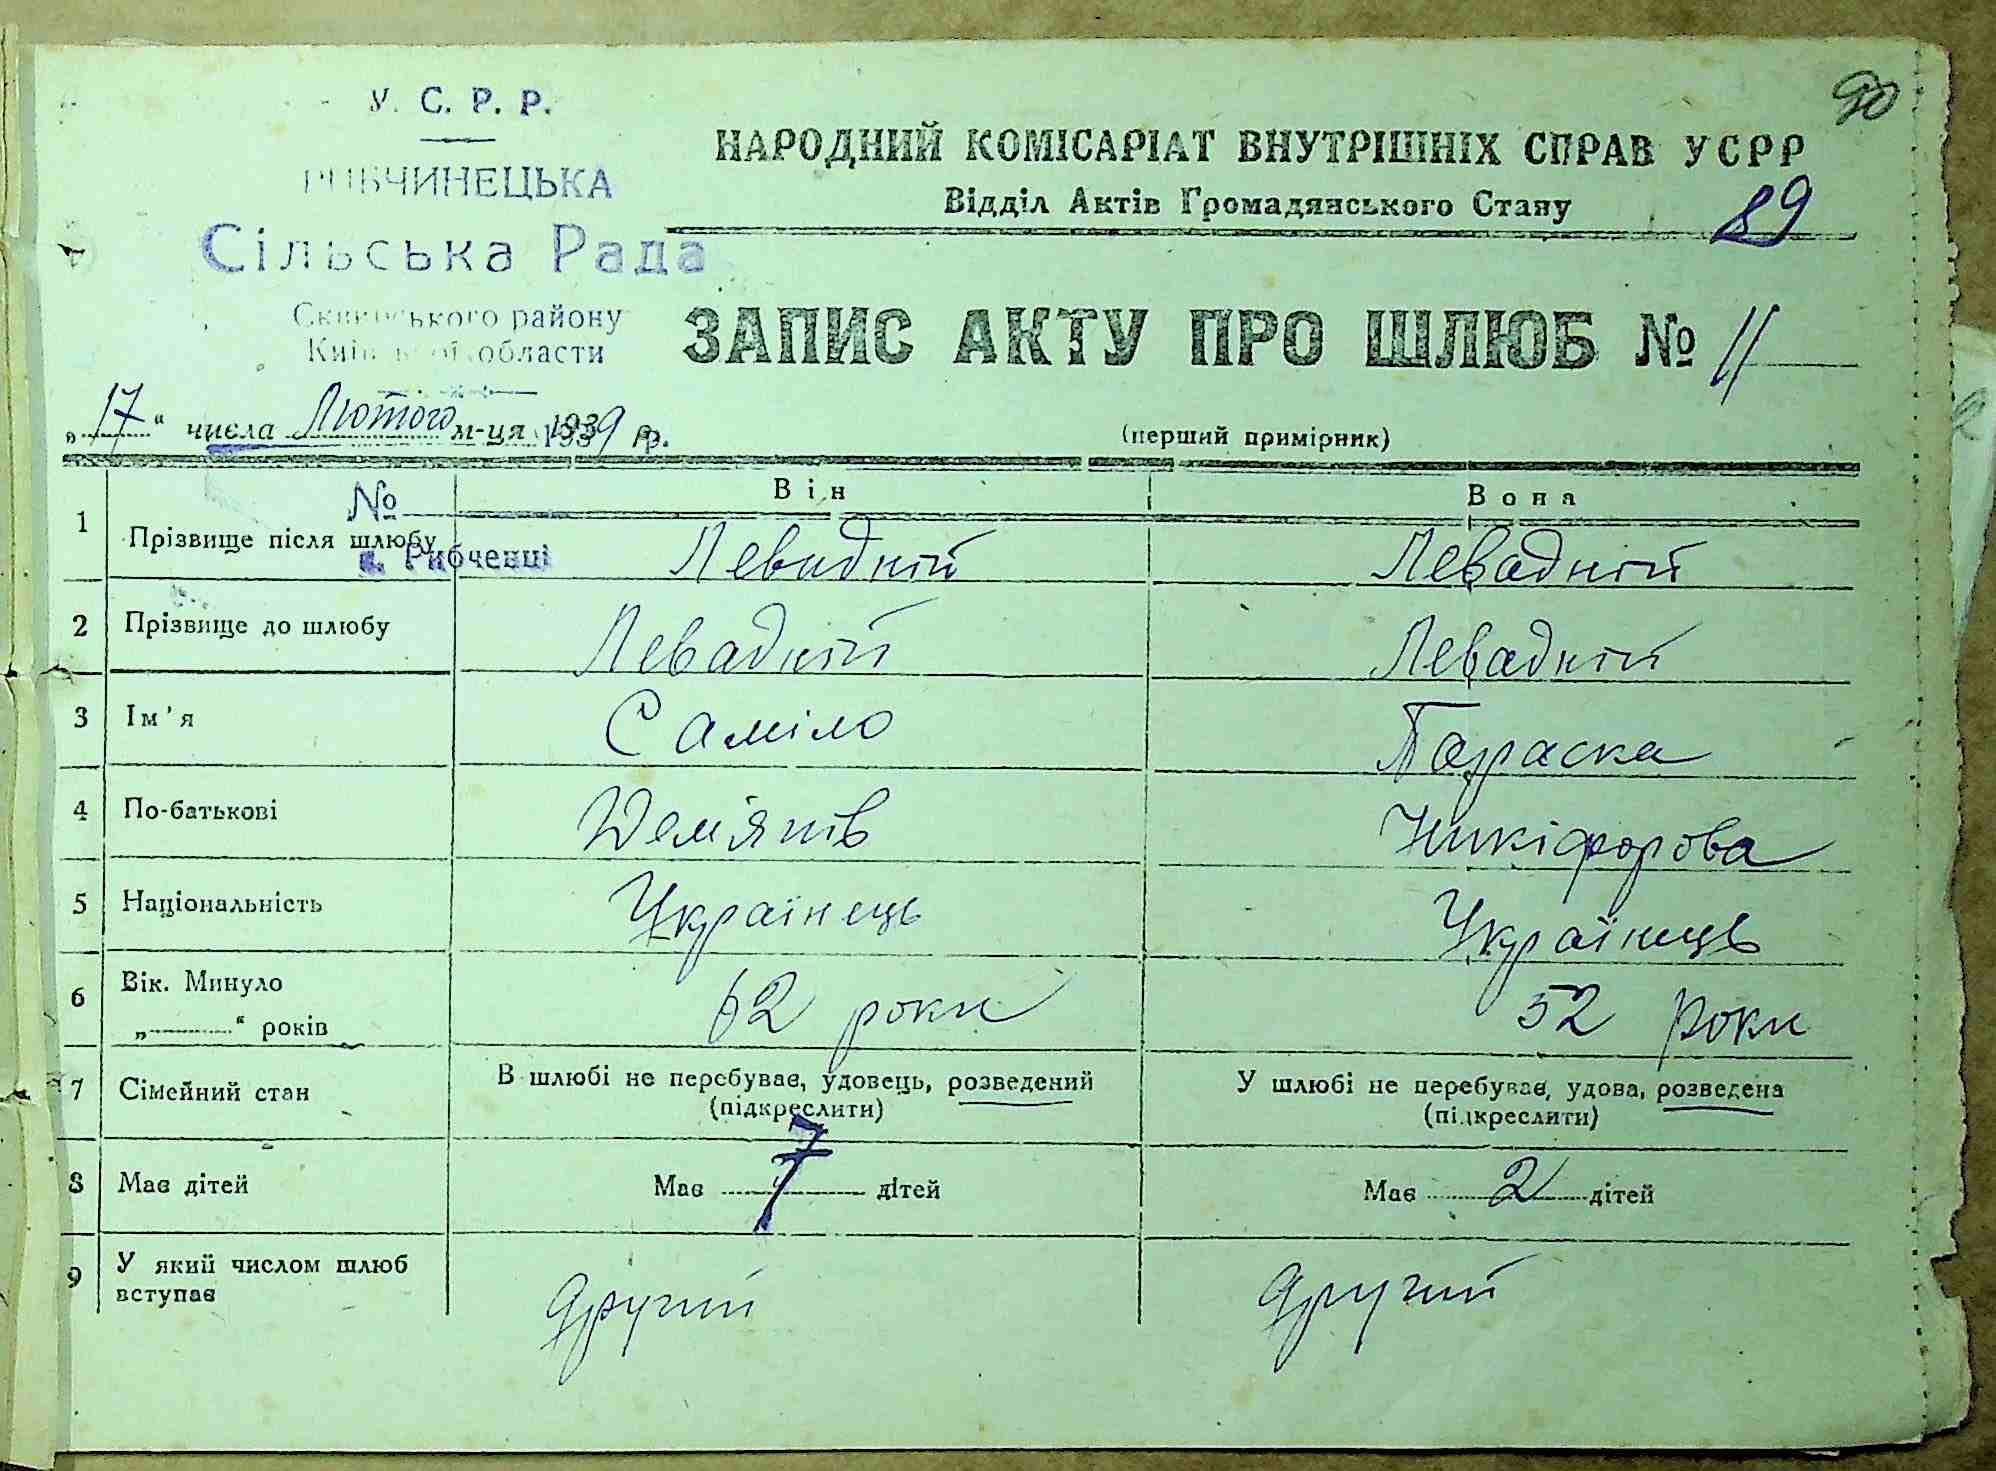 90
У. С. Р. Р.
РИБЧИНЕЦЬКА
Сільська Рада
Сквирського району
Київської области
НАРОДНИЙ КОМІСАРІАТ ВНУТРІШНІХ СПРАВ УСРР
Відділ Актів Громадянського Стану
89
ЗАПИС АКТУ ПРО ШЛЮБ № 11
„17“ числа Лютого м-ця 1939 р.
(перший примірник)
№
с. Рибченці
Він Вона
1 Прізвище після шлюбу Левадній Левадній
2 Прізвище до шлюбу Левадній Левадній
3 Ім'я Саміло Параска
4 По-батькові Дем'янів Никіфорова
5 Національність Українець Українець
6 Вік. Минуло „ “ років 62 роки 52 роки
7 Сімейний стан В шлюбі не перебував, удовець, розведений (підкреслити) У шлюбі не перебував, удова, розведена (підкреслити)
8 Має дітей Має 7 дітей Має 2 дітей
9 У який числом шлюб вступає другий другий